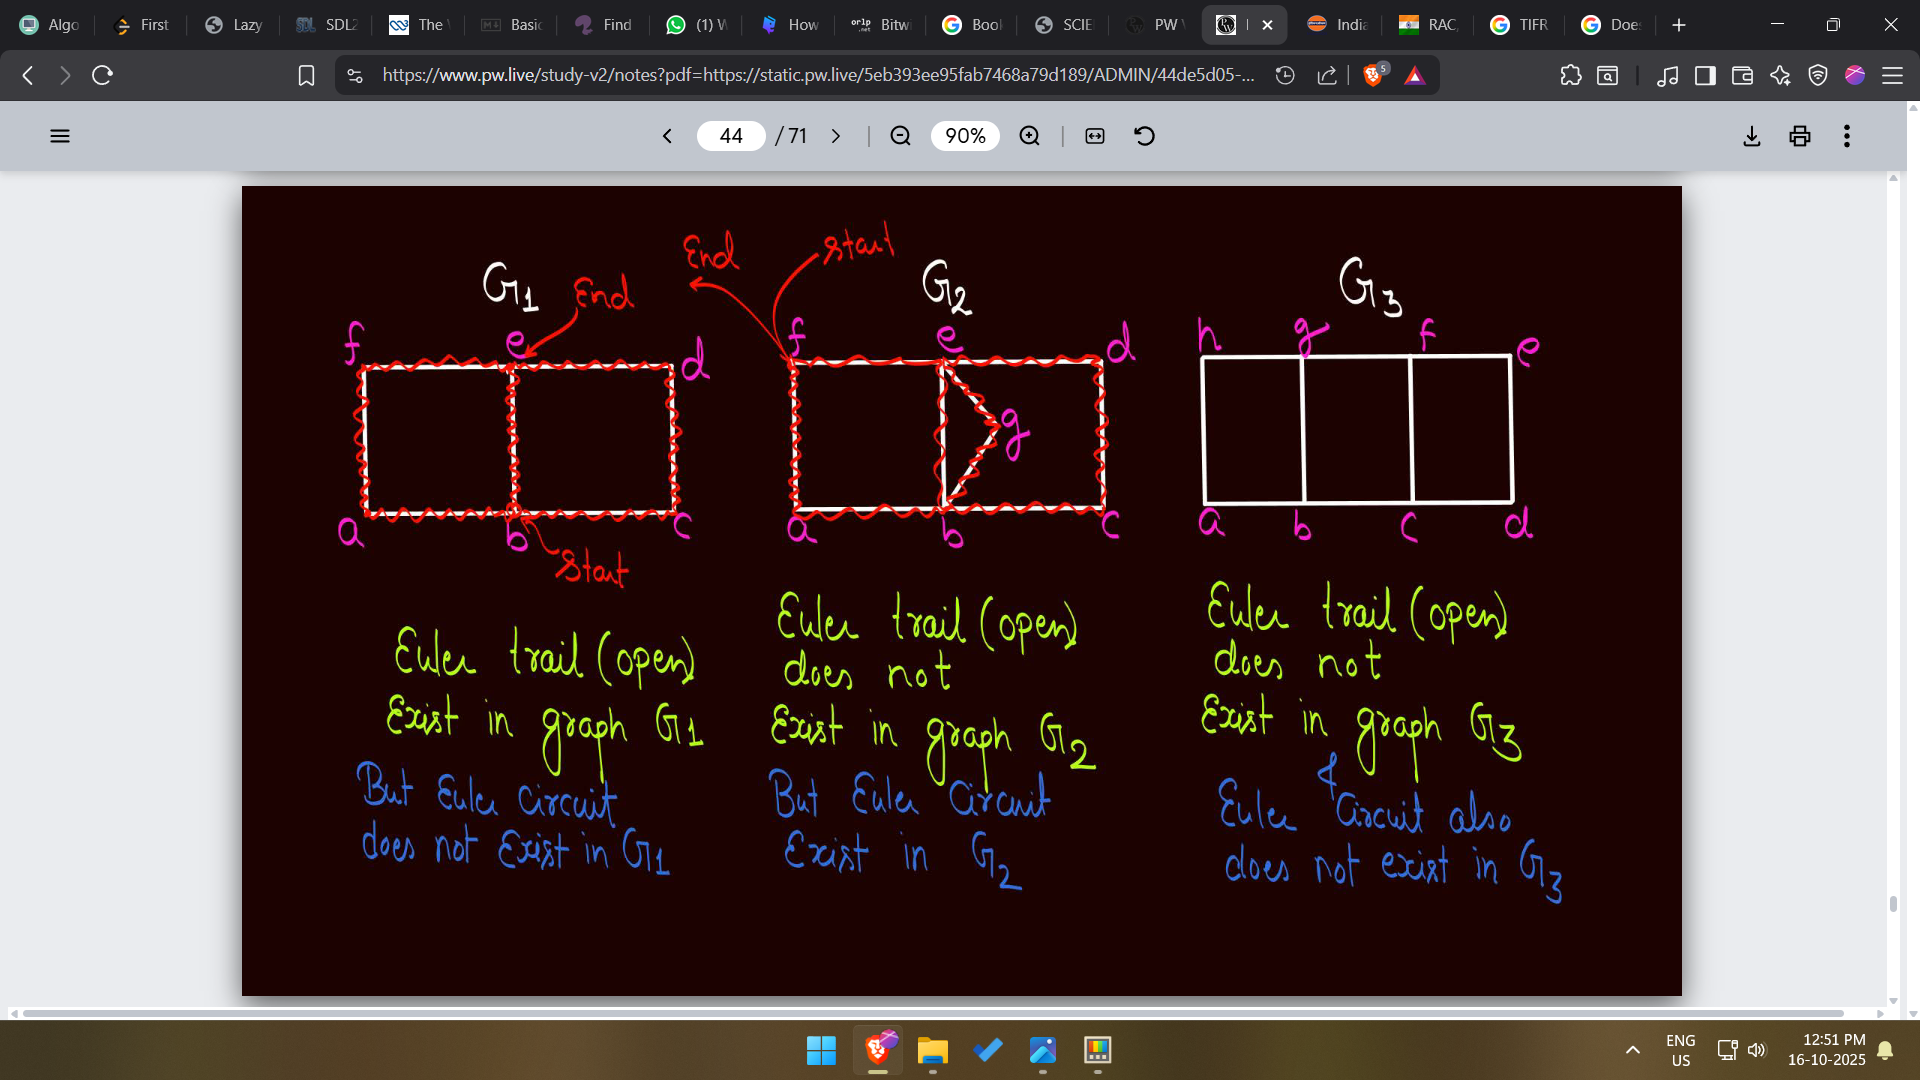 Algo
First
Lazy
SDL2
The
Basic
Find
(1) W
How
orlp
.net
Bitw
Book
SCIE
PW
India
RAC,
TIFR
Does
https://www.pw.live/study-v2/notes?pdf=https://static.pw.live/5eb393ee95fab7468a79d189/ADMIN/44de5d05-...
5
44 / 71
90%
G1
End
f e d
a b c
Start
End
Start
G2
f e d
g
a b c
G3
h g f e
a b c d
Euler trail (open)
Exist in graph G1
But Euler circuit
does not Exist in G1
Euler trail (open)
does not
Exist in graph G2
But Euler Circuit
Exist in G2
Euler trail (open)
does not
Exist in graph G3
&
Euler Circuit also
does not exist in G3
ENG
US
12:51 PM
16-10-2025